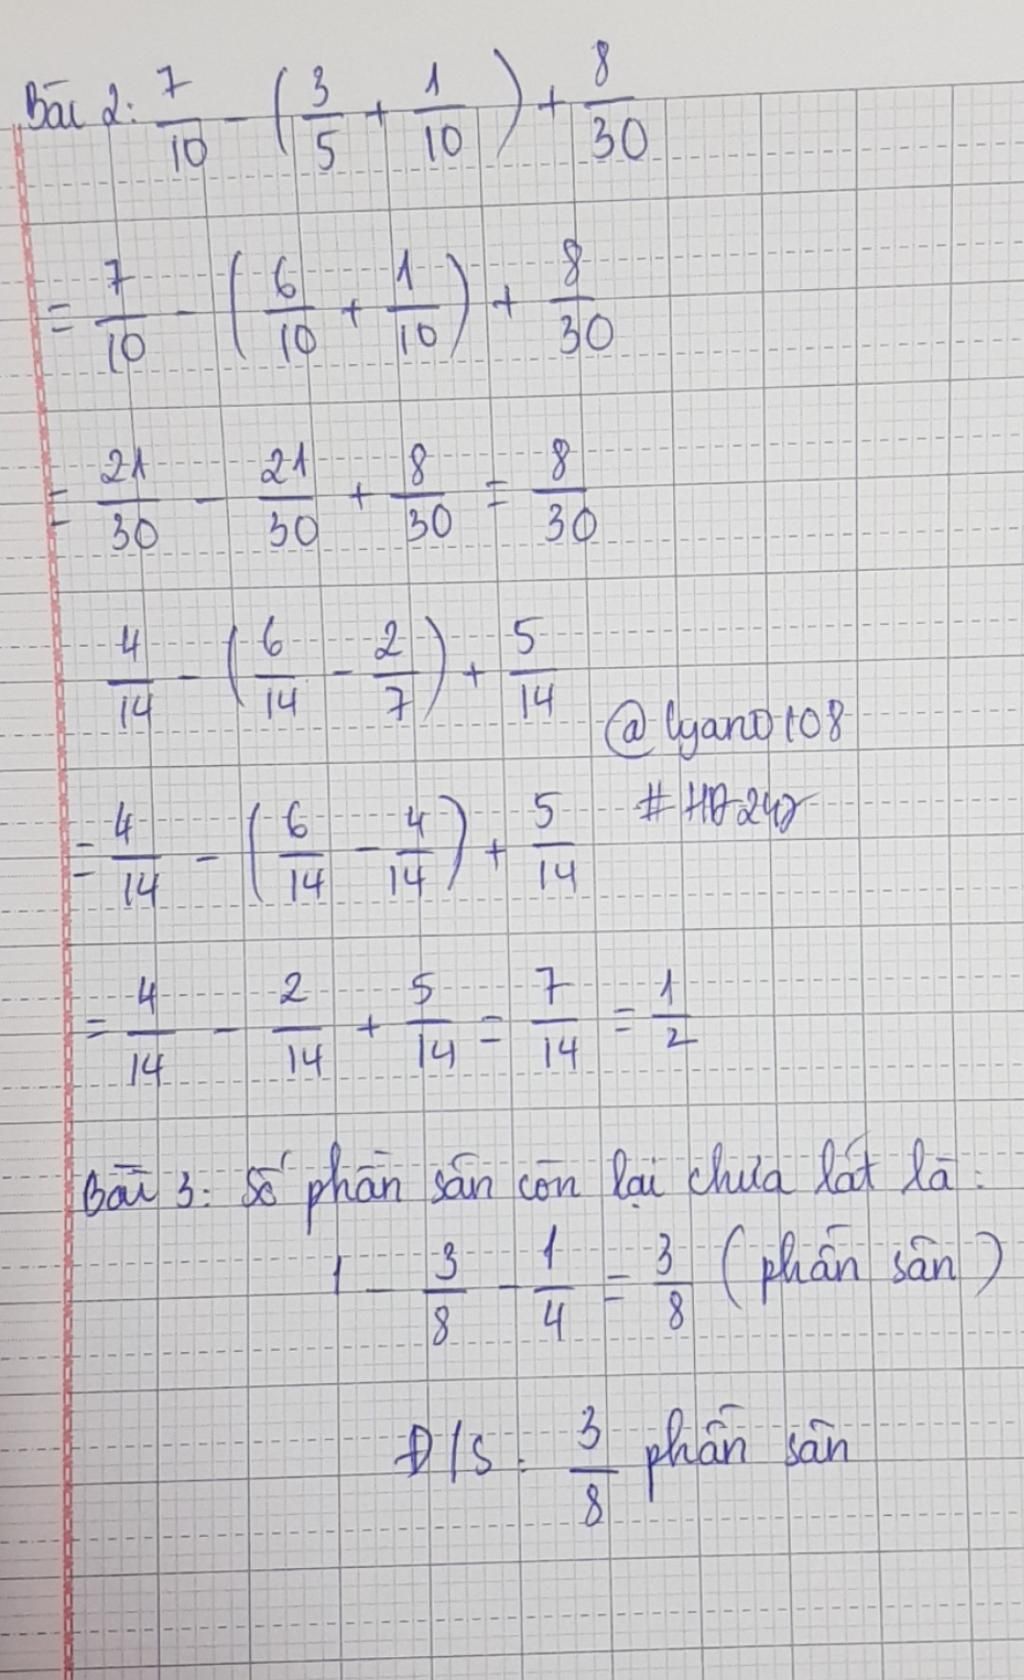 Bài 2: 7/10 - (3/5 + 1/10) + 8/30
= 7/10 - (6/10 + 1/10) + 8/30
= 21/30 - 21/30 + 8/30 = 8/30
4/14 - (6/14 - 2/7) + 5/14
@lyan0108
= 4/14 - (6/14 - 4/14) + 5/14
#
= 4/14 - 2/14 + 5/14 = 7/14 = 1/2
Bài 3: Số phần sân còn lại chưa lát là:
1 - 3/8 - 1/4 = 3/8 (phần sân)
Đ/S: 3/8 phần sân